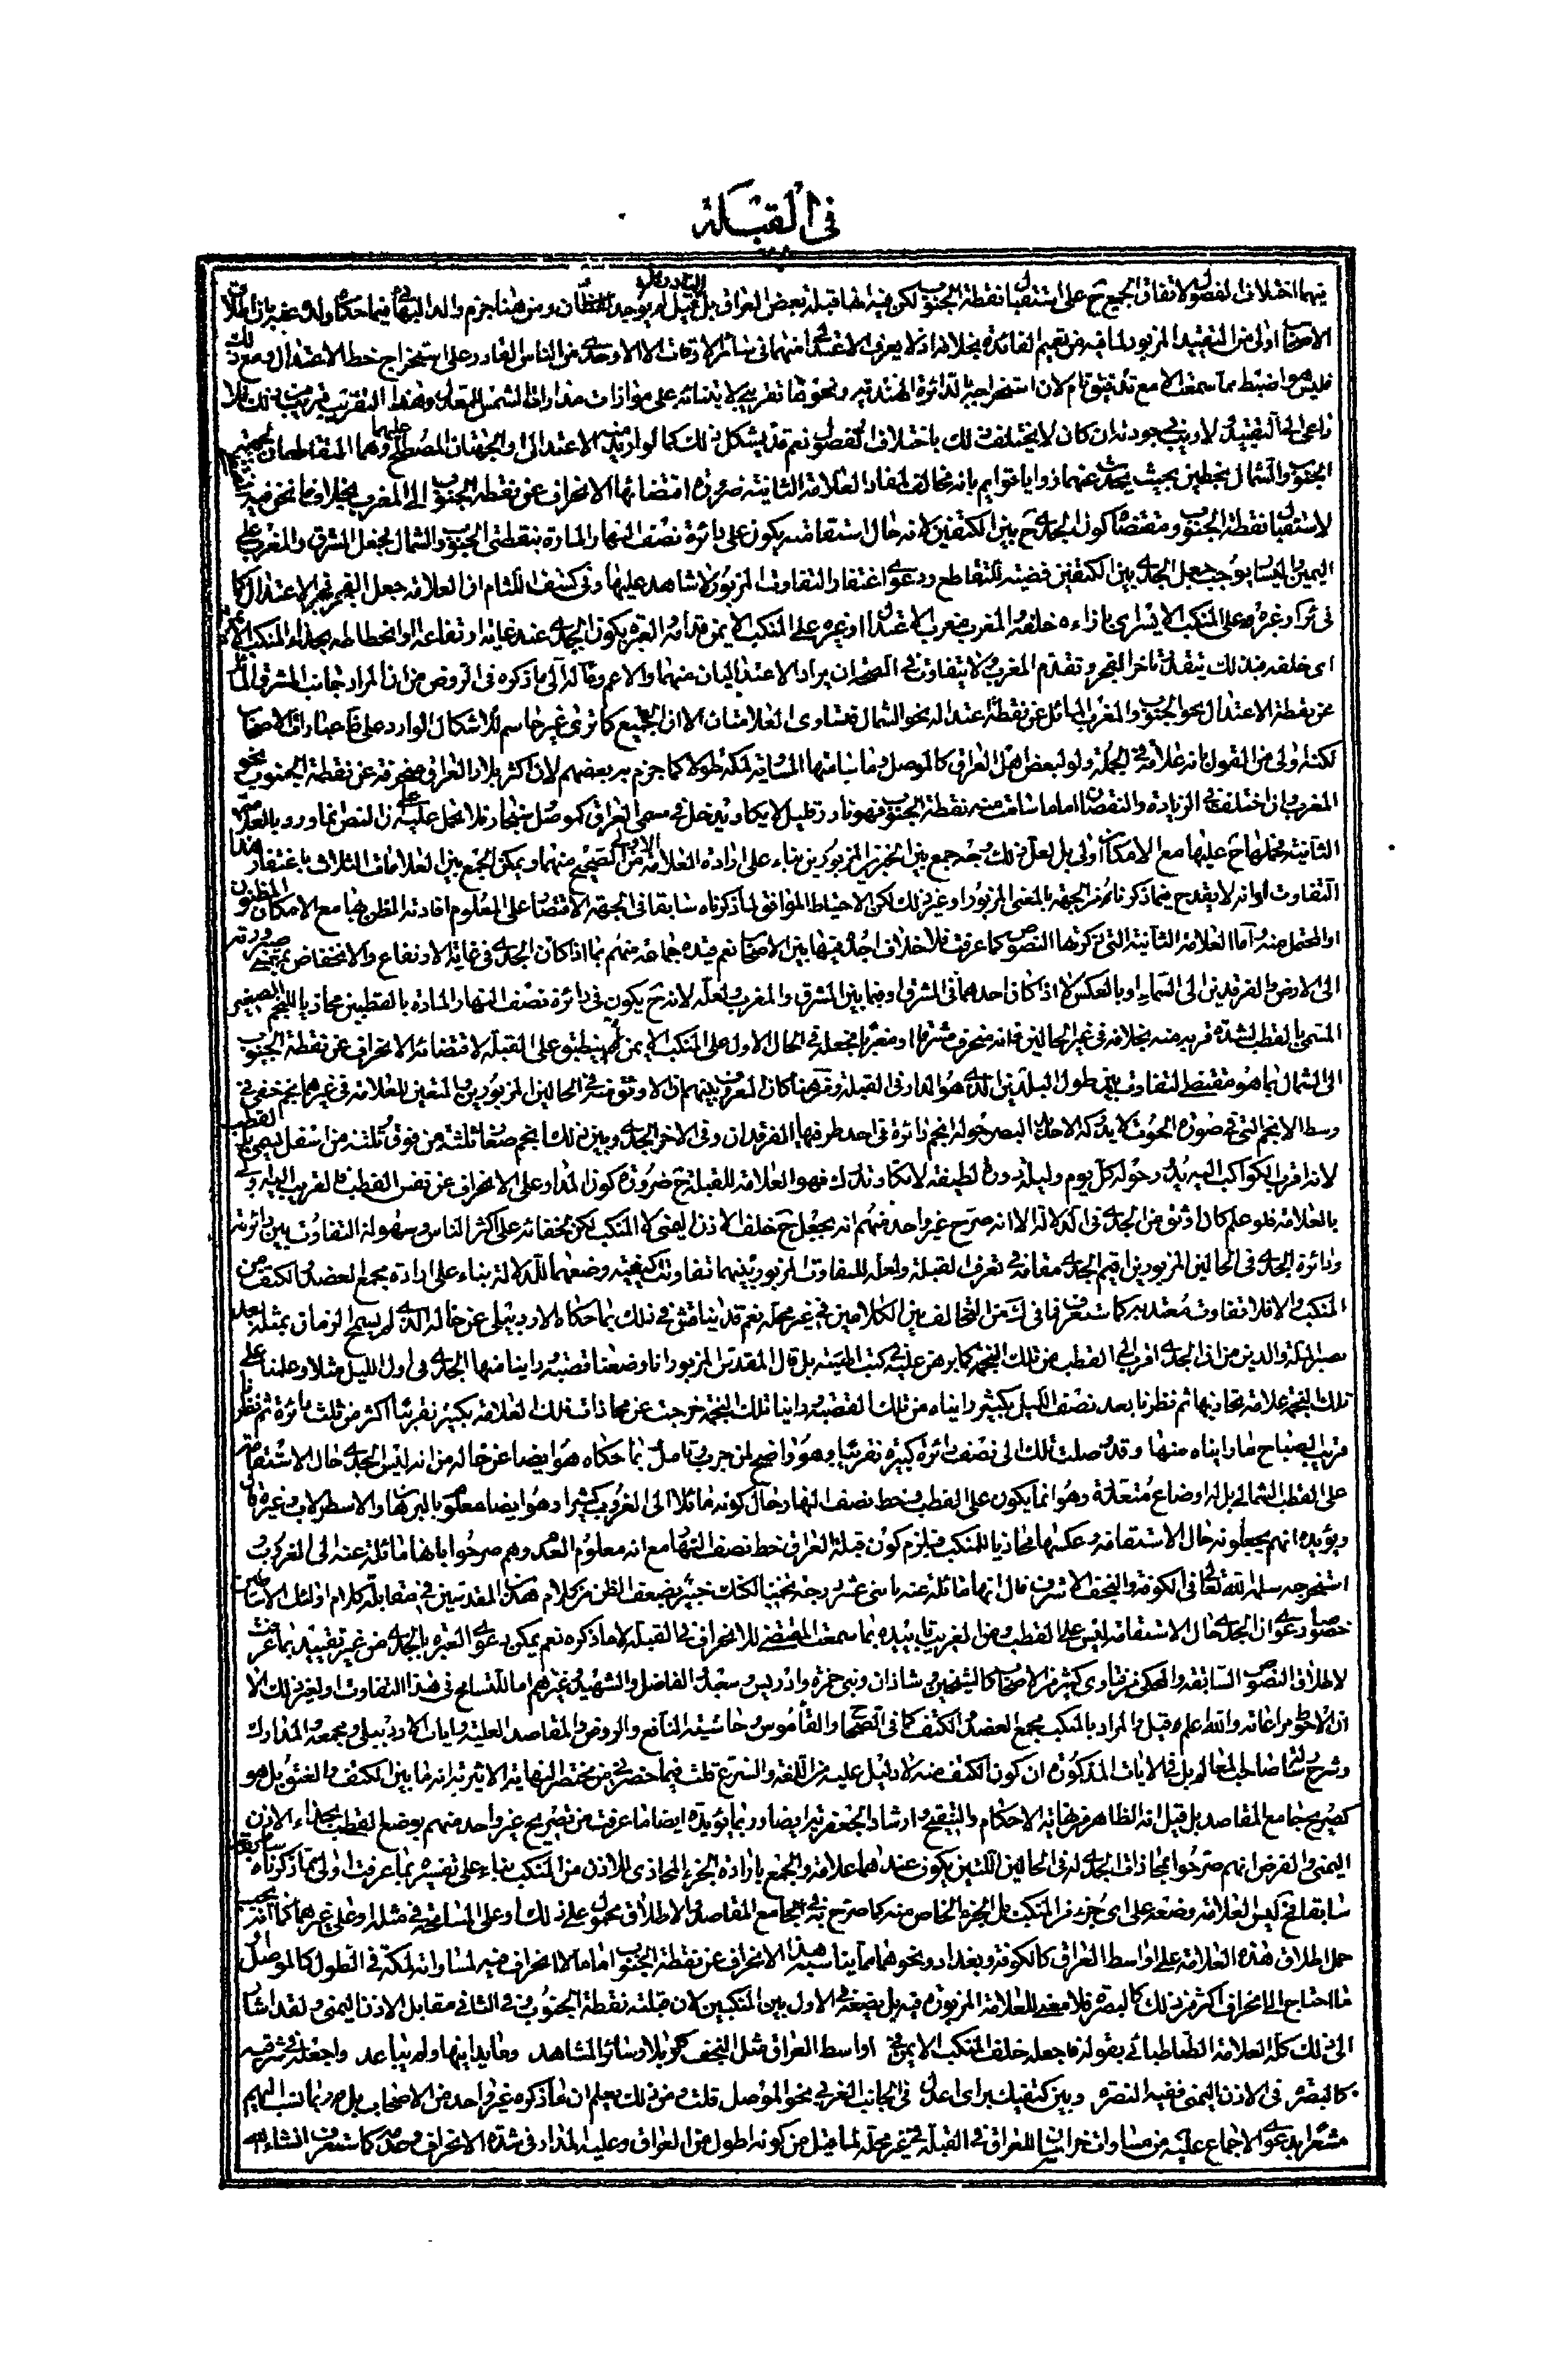 في القبلة
فيهما اختلاف الفصول لاتفاق الجميع ح على استقبال نقطة الجنوب لكن فيه انها قبلة بعض العراق بل قيل لم يوجد ومن هنا جزم والد البهائي فيما حكاه ولده عنه بان اطلاق
الاصحاب اولى من التقييد المزبور لما فيه من تعميم الفائدة بخلافه اذ لا يعرف الاعتدال منهما في سائر الاوقات الا الاوحدي من الناس القادر على استخراج خط الاعتدال ومع ذلك
فليس هو اضبط مما سمعت الا مع تدقيق تام لان استخراجه بالدائرة الهندية ونحوها تقريبي لابتنائه على موازات مدارات الشمس للمعدل وهذا التقريب قريب من ذلك فلا
داعي الى التقييد لا ريب في جودته ان كان لا يختلف ذلك باختلاف الفصول نعم قد يشكل ذلك كما لو اريد منه الاعتدالي والجهتان المصطلح عليهما وهما المتقاطعان لجهتي
الجنوب والشمال بخطين بحيث يحدث عنهما زوايا قوايم بانه مخالف لمفاد العلامة الثانية ضرورة اقتضائها الانحراف عن نقطة الجنوب الى المغرب بخلاف ما نحن فيه
لاستقبال نقطة الجنوب ومقتضاه كون الجدي ح بين الكتفين لانه حال استقامته يكون على دائرة نصف النهار المارة بنقطتي الجنوب والشمال فجعل المشرق والمغرب على
اليمين واليسار يوجب جعل الجدي بين الكتفين قضية للتقاطع ودعوى اغتفار التفاوت المزبور لا شاهد عليها وفي كشف اللثام ان العلامة جعل الفجر فجر الاعتدال كا
في ئر او غيره على المنكب الايسر اي بازائه خلفه والمغرب مغرب الاعتدال او غيره على المنكب الايمن قدامه العبرة بكون الجدي عند غاية ارتفاعه او انحطاطه بحذاء المنكب الايمن
اي خلفه فبذلك يتقدر تاخر الفجر وتقدم المغرب ولا يتفاوت في ان يراد الاعتداليان منهما والاعم ومآله الى ما ذكره في الروض من ان المراد جانب المشرق المائل
عن نقطة الاعتدال نحو الجنوب والمغرب المائل عن نقطة اعتداله نحو الشمال فتساوى العلامتان الا ان الجميع كما ترى غير حاسم للاشكال الوارد على ظاهر عبارات الاصحاب
لكنه اولى من القول بانه علامة في الجملة ولو لبعض اهل العراق كالموصل وما سامتها المساوية لمكة طولا كما جزم به بعضهم لان اكثر بلاد العراق منحرفة عن نقطة الجنوب نحو
المغرب وان اختلفت في الزيادة والنقصان اما ما سامت منه نقطة الجنوب فهو نادر قليل لا يكاد يدخل في مسمى العراق كموصل سنجار فلا يحمل عليه النص فما ورد بالعلامة
الثانية فحملها ح عليها مع الامكان اولى بل لعل ذلك وجه جمع بين الخبرين المزبورين بناء على ارادة العلامة من الصحيح منهما ويمكن الجمع بين العلامات الثلاث باغتفار هذا
التفاوت او انه لا يقدح فيما ذكرناه من الجهة بالمعنى المزبور او غير ذلك لكن الاحتياط الموافق لما ذكرناه سابقا في الجهة الاقتصار على المعلوم افادته الظن بها مع الامكان او المظنون
او المحتمل منه واما العلامة الثانية التي ذكرتها النصوص كما عرفت فلا خلاف اجده فيها بين الاصحاب نعم قيده جماعة منهم بما اذا كان الجدي في غاية الارتفاع والانخفاض بمعنى صيرورته
الى الارض والفرقدين الى السماء او بالعكس لا اذا كان احدهما في المشرق او فيما بين المشرق والمغرب ولعله لانه ح يكون في دائرة نصف النهار المارة بالقطبين محاذيا للنجم الصغير
المسمى بالقطب لشدة قربه منه بخلافه في غير الحالين فانه منحرف مشرقا او مغربا فجعله في الحال الاول على المنكب الايمن لم ينطبق على القبلة لاقتضائه الانحراف عن نقطة الجنوب
الى الشمال بما هو مقتضى لتفاوت بين طول البلدين الذي هو المدار في القبلة ومن هنا كان المعروف بينهم ان الاوثق منه في الحالين المزبورين بل المتعين للعلامة في غيرهما نجم خفي في
وسط الانجم التي في صورة الحوت لا يدركه الا حاد البصر حوله انجم دائرة في احد طرفيها الفرقدان وفي الاخر الجدي وبين ذلك انجم صغار ثلثة من فوق وثلثة من اسفل يسمى بالقطب
لانه اقرب الكواكب اليه يدور حوله كل يوم وليلة دورة لطيفة لا تكاد تدرك فهو العلامة للقبلة ح ضرورة كون المدار على الانحراف عن نفس القطب فالقريب اليه اولى
بالعلامة فلو علم كان اوثق من الجدي في الدلالة الا انه صرح غير واحد منهم انه يجعل ح خلف الاذن اليمنى لا المنكب لكن لخفائه على اكثر الناس وسهولة التفاوت بين دائرته
ودائرة الجدي في الحالين المزبورين اقيم الجدي مقامه في تعرف القبلة ولعله للتفاوت المزبور بينهما تفاوت كيفية وضعهما للدلالة بناء على ارادة مجمع العضد والكتف من
المنكب والا فلا تفاوت معتد به كما ستعرف فما في ك من التخالف بين الكلامين في غير محله نعم قد يناقش في ذلك بما حكاه الاردبيلي عن خاله الذي لم يسمح الزمان بمثله بعد
نصير الملة والدين من ان الجدي اقرب الى القطب من تلك النجمة كما برهن عليه في كتب الهيئة بل قال المقدس المزبور انا وضعنا قصبة وراينا منها الجدي في اول الليل مثلا وعلمنا على
تلك النجمة علامة تحاذيها ثم نظرنا بعد نصف الليل بكثير ورايناه من تلك القصبة وراينا تلك النجمة خرجت عن محاذات تلك العلامة بكثير تقريبا اكثر من ثلث دائرة ثم نظرنا
قريب الصباح فما رايناه منها وقد وصلت تلك الى نصف دائرة كبيرة تقريبا وهو واضح لمن جرب وتامل بما حكاه هو ايضا عن خاله من انه ليس الجدي حال الاستقامة
على القطب الشمالي بل له اوضاع متعددة وهو انما يكون على القطب وخط نصف النهار حال كونه مائلا الى الغروب كثيرا وهو ايضا معلوم بالبرهان والاسطرلاب وغيره قال
ويؤيده انهم يجعلونه حال الاستقامة وعكسها محاذيا للمنكب فيلزم كون قبلة العراق خط نصف النهار مع انه معلوم العدم وهم صرحوا بانها مائلة عنه الى المغرب
استخرجه سلمه الله تعالى في الكوفة والنجف الاشرف قال انها مائلة عنه باثنى عشر درجة تخمينا لكنك خبير بضعف الظن من كلام هذين المقدسين في مقابلة كلام اولئك الاساطين
خصوصا دعوى ان الجدي حال الاستقامة ليس على القطب ومن الغريب تاييده بما سمعت المقتضي للانحراف في القبلة لا ما ذكره نعم يمكن دعوى العبرة بالجدي من غير تقييد بما عرفت
لاطلاق النصوص السابقة والمحكي من فتاوى كثير من الاصحاب كالشيخين وشاذان وبني حمزة وادريس وسعيد والفاضل والشهيد وغيرهم اما للتسامح في هذا التفاوت او لغير ذلك الا
ان الاحوط مراعاته والله اعلم وقيل والمراد بالمنكب مجمع العضد والكتف كما في الصحاح والقاموس وحاشية النافع والروض والمقاصد العلية وايات الاردبيلي ومجمعه والمدارك
وشرح رسالة صاحب المعالم بل في الايات المذكورة ان كون الكتف منه لا دليل عليه من اللغة والشرع قلت فيما حضرني من مختصر النهاية الاثيرية انه ما بين الكتف والعنق بل هو
كصريح جامع المقاصد بل قيل انه الظاهر من نهاية الاحكام والتنقيح وارشاد الجعفرية ايضا وربما يؤيده ايضا ما عرفت من تصريح غير واحد منهم بوضع القطب بحذاء الاذن
اليمنى والفرض انهم صرحوا بمحاذات الجدي له في الحالين اللتين يكون عندهما علامة والجمع بارادة الجزء المحاذي للاذن من المنكب بناء على تفسيره بما عرفت اولى مما ذكرناه
سابقا فح ليس العلامة وضعه على اي جزء من المنكب بل الجزء الخاص منه كما صرح به في الجامع المقاصد والاطلاق محمول على ذلك او على المسامحة في مثله او على غيرهما كما انه يجب
حمل اطلاق هذه العلامة على اواسط العراق كالكوفة وبغداد ونحوهما مما يناسبه هذا الانحراف عن نقطة الجنوب اما ما لا انحراف فيه لمساواته لمكة في الطول كالموصل
فما احتاج الى انحراف اكثر من ذلك كالبصرة فلا معنى للعلامة المزبورة فيه بل يضعه في الاول بين المنكبين لان قبلته نقطة الجنوب وفي الثاني مقابل الاذن اليمنى ولقد اشار
الى ذلك كله العلامة الطباطبائي بقوله فاجعله خلف المنكب الايمن في اواسط العراق مثل النجف وكربلا وسائر المشاهد وما يدانيها ولم يباعد واجعله في شرقيه
كالبصرة في الاذن اليمنى ففيه النصرة وبين كتفيك براي اعدل في الجانب الغربي نحو الموصل قلت ومن ذلك يعلم ان ما ذكره غير واحد من الاصحاب بل ربما نسب اليهم
مشعرا بدعوى الاجماع عليه من مساوات خراسان للعراق في القبلة في غير محله لما قيل من كونه اطول من العراق وعليه المدار في شدة الانحراف وضده كما ستعرف انشاء الله